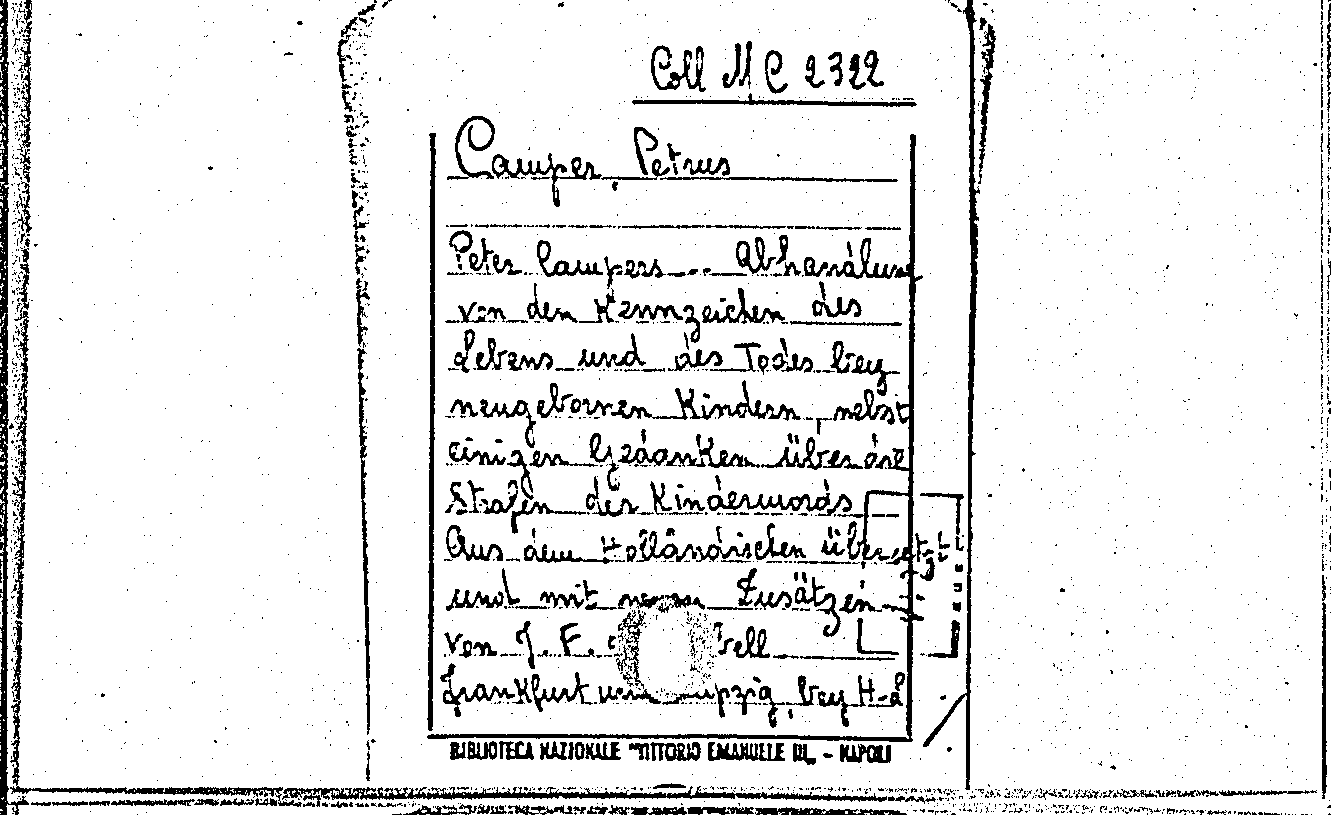 Coll MC 2322
Camper, Petrus
Peter Campers --- Abhandlung
von den Kennzeichen des
Lebens und des Todes bey
neugebornen Kindern, nebst
einigen Gedanken über die
Strafen des Kindermords
Aus dem Holländischen übersetzt
und mit neuen Zusätzen
von J. F.
Frankfurt und Leipzig, bey H-L
BIBLIOTECA NAZIONALE "VITTORIO EMANUELE III" - NAPOLI